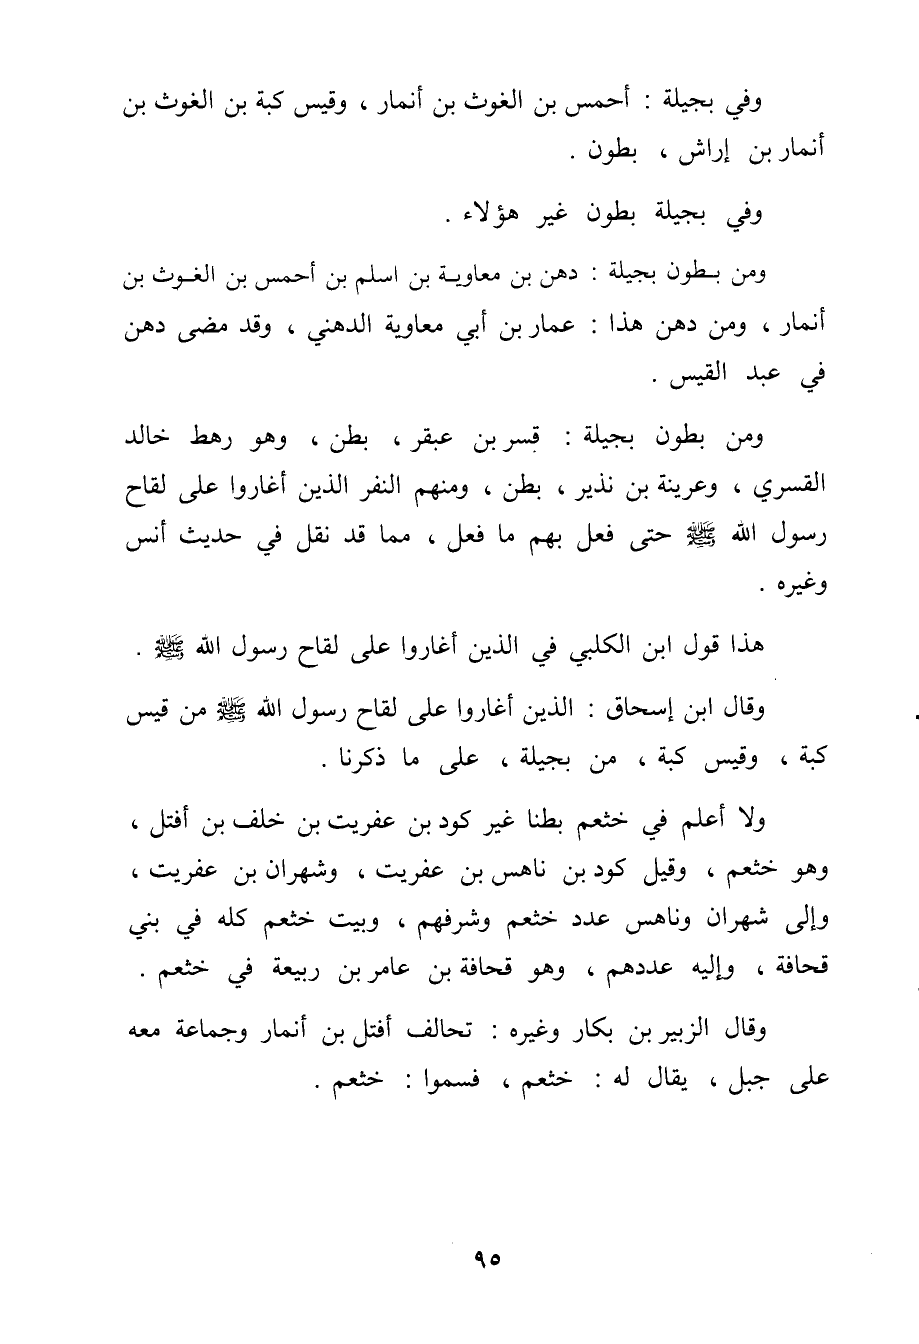 وفي بجيلة : أحمس بن الغوث بن أنمار ، وقيس كبة بن الغوث بن
أنمار بن إراش ، بطون .
وفي بجيلة بطون غير هؤلاء .
ومن بطون بجيلة : دهن بن معاوية بن اسلم بن أحمس بن الغوث بن
أنمار ، ومن دهن هذا : عمار بن أبي معاوية الدهني ، وقد مضى دهن
في عبد القيس .
ومن بطون بجيلة : قسر بن عبقر ، بطن ، وهو رهط خالد
القسري ، وعرينة بن نذير ، بطن ، ومنهم النفر الذين أغاروا على لقاح
رسول الله ﷺ حتى فعل بهم ما فعل ، مما قد نقل في حديث أنس
وغيره .
هذا قول ابن الكلبي في الذين أغاروا على لقاح رسول الله ﷺ .
وقال ابن إسحاق : الذين أغاروا على لقاح رسول الله ﷺ من قيس
كبة ، وقيس كبة ، من بجيلة ، على ما ذكرنا .
ولا أعلم في خثعم بطنا غير كود بن عفريت بن خلف بن أفتل ،
وهو خثعم ، وقيل كود بن ناهس بن عفريت ، وشهران بن عفريت ،
وإلى شهران وناهس عدد خثعم وشرفهم ، وبيت خثعم كله في بني
قحافة ، وإليه عددهم ، وهو قحافة بن عامر بن ربيعة في خثعم .
وقال الزبير بن بكار وغيره : تحالف أفتل بن أنمار وجماعة معه
على جبل ، يقال له : خثعم ، فسموا : خثعم .
٩٥